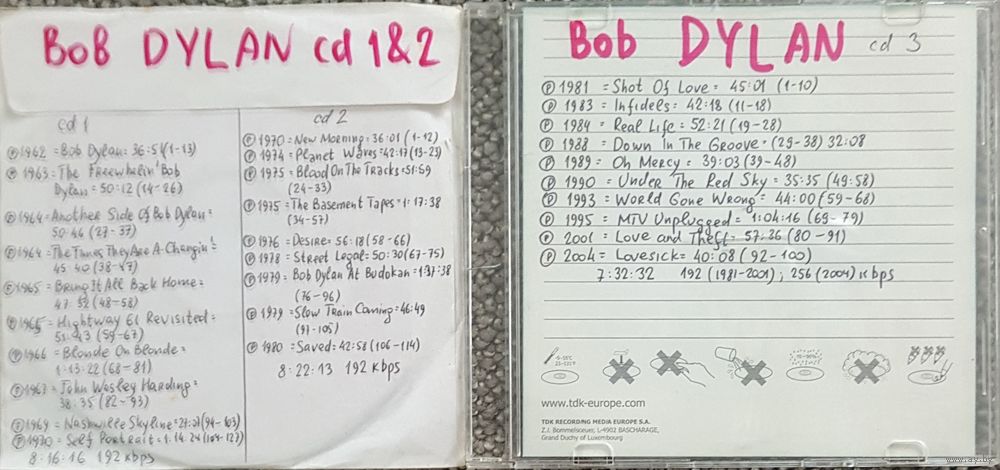 BOB DYLAN cd 1&2
cd 1
℗ 1962 = Bob Dylan: 36:51 (1-13)
℗ 1963 = The Freewhelin' Bob
Dylan = 50:12 (14-26)
℗ 1964 = Another Side Of Bob Dylan =
50:44 (27-37)
℗ 1964 = The Times They Are A-Changin' =
45:40 (38-47)
℗ 1965 = Bring It All Back Home =
47:32 (48-58)
℗ 1965 = Hightway 61 Revisited =
51:43 (59-67)
℗ 1966 = Blonde On Blonde =
1:13:22 (68-81)
℗ 1967 = John Wesley Harding =
38:35 (82-93)
℗ 1969 = Nashville Skyline = 27:07 (94-103)
℗ 1970 = Self Portrait = 1:14:24 (104-127)
8:16:16 192 kbps
cd 2
℗ 1970 = New Morning = 36:01 (1-12)
℗ 1974 = Planet Waves = 42:17 (13-23)
℗ 1975 = Blood On The Tracks = 51:59
(24-33)
℗ 1975 = The Basement Tapes = 1:17:38
(34-57)
℗ 1976 = Desire = 56:18 (58-66)
℗ 1978 = Street Legal = 50:30 (67-75)
℗ 1979 = Bob Dylan At Budokan = 1:37:38
(76-96)
℗ 1979 = Slow Train Coming = 46:49
(97-105)
℗ 1980 = Saved = 42:58 (106-114)
8:22:13 192 kbps
Bob DYLAN cd 3
℗ 1981 = Shot Of Love = 45:01 (1-10)
℗ 1983 = Infidels = 42:18 (11-18)
℗ 1984 = Real Life = 52:21 (19-28)
℗ 1988 = Down In The Groove = (29-38) 32:08
℗ 1989 = Oh Mercy = 39:03 (39-48)
℗ 1990 = Under The Red Sky = 35:35 (49-58)
℗ 1993 = World Gone Wrong = 44:00 (59-68)
℗ 1995 = MTV Unplugged = 1:04:16 (69-79)
℗ 2001 = Love and Theft = 57:26 (80-91)
℗ 2004 = Lovesick = 40:08 (92-100)
7:32:32 192 (1981-2001); 256 (2004) kbps
www.tdk-europe.com
TDK RECORDING MEDIA EUROPE S.A.
Z.I. Bommelscheuer, L-4902 BASCHARAGE,
Grand Duchy of Luxembourg